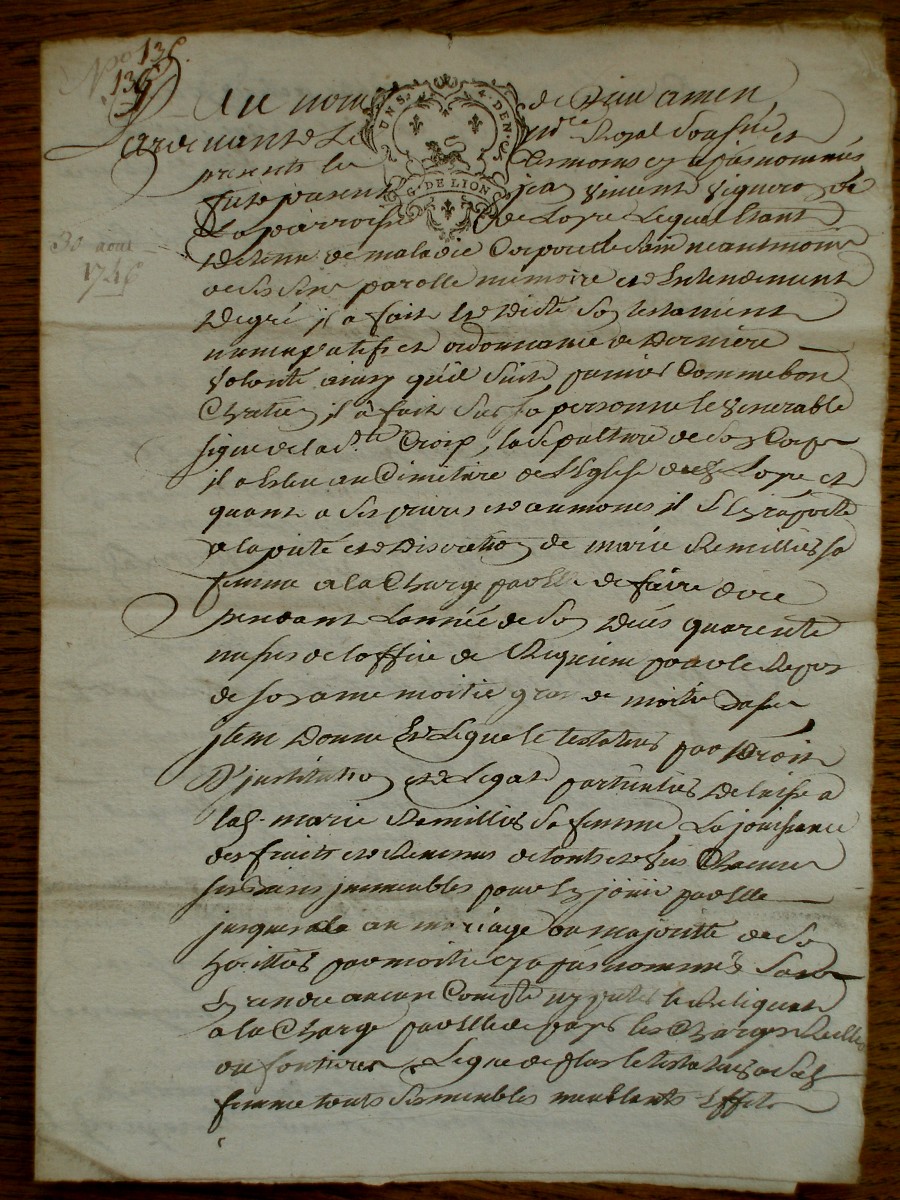 No 136.
136
Au nom de Dieu amen,
Pardevant le no.re Royal Soussigné et
présents les Témoins cy apres nommés
fut present jean Vincent Vigneron de
La parroisse de Loyre Lequel Etant
Detenu de maladie Corporelle Sain neantmoins
de Ses Sens parolle memoire et Entendement
Degré jl a fait et Dicté Son testament
nuncupatif et ordonnance de Derniere
Volonté ainsy quil Suit, premier Comme bon
Chretien jl a fait Sur Sa personne le Venerable
signe de la Ste Croix, la Sepulture de Son Corps
jl a Eslu au Cimitiere de L'Eglise dud. Loyre et
quant a Ses prieres et aumones jl S'En raporte
a la pieté et Discretion de marie Remillier sa
femme a la Charge par Elle de faire dire
pendant Lannée de Son Décès quarente
messes de L'office de Requiem pour le Repos
de Son ame moitié grandes moitié basses
jtem Donne Et Legue le testateur par Droit
D'jnstitution et de Legat particulier Delaisse a
lad. marie Remillier Sa femme La jouissance
des fruits et Revenus de touts et Uns Chacuns
Ses biens jmmeubles pour En jouir par Elle
jusques au mariage ou majorité de Son
heritier par moitié cy apres nommé Sans
En rendre aucun Compte ny preter le Reliquat
a la Charge par Elle de payer les Charges Réelles
ou foncieres Legue de plus le testateur a Sad.
femme touts Ses meubles meublants Effets
30 aout
1746
UN S. 4. DEN.
G. DE LION